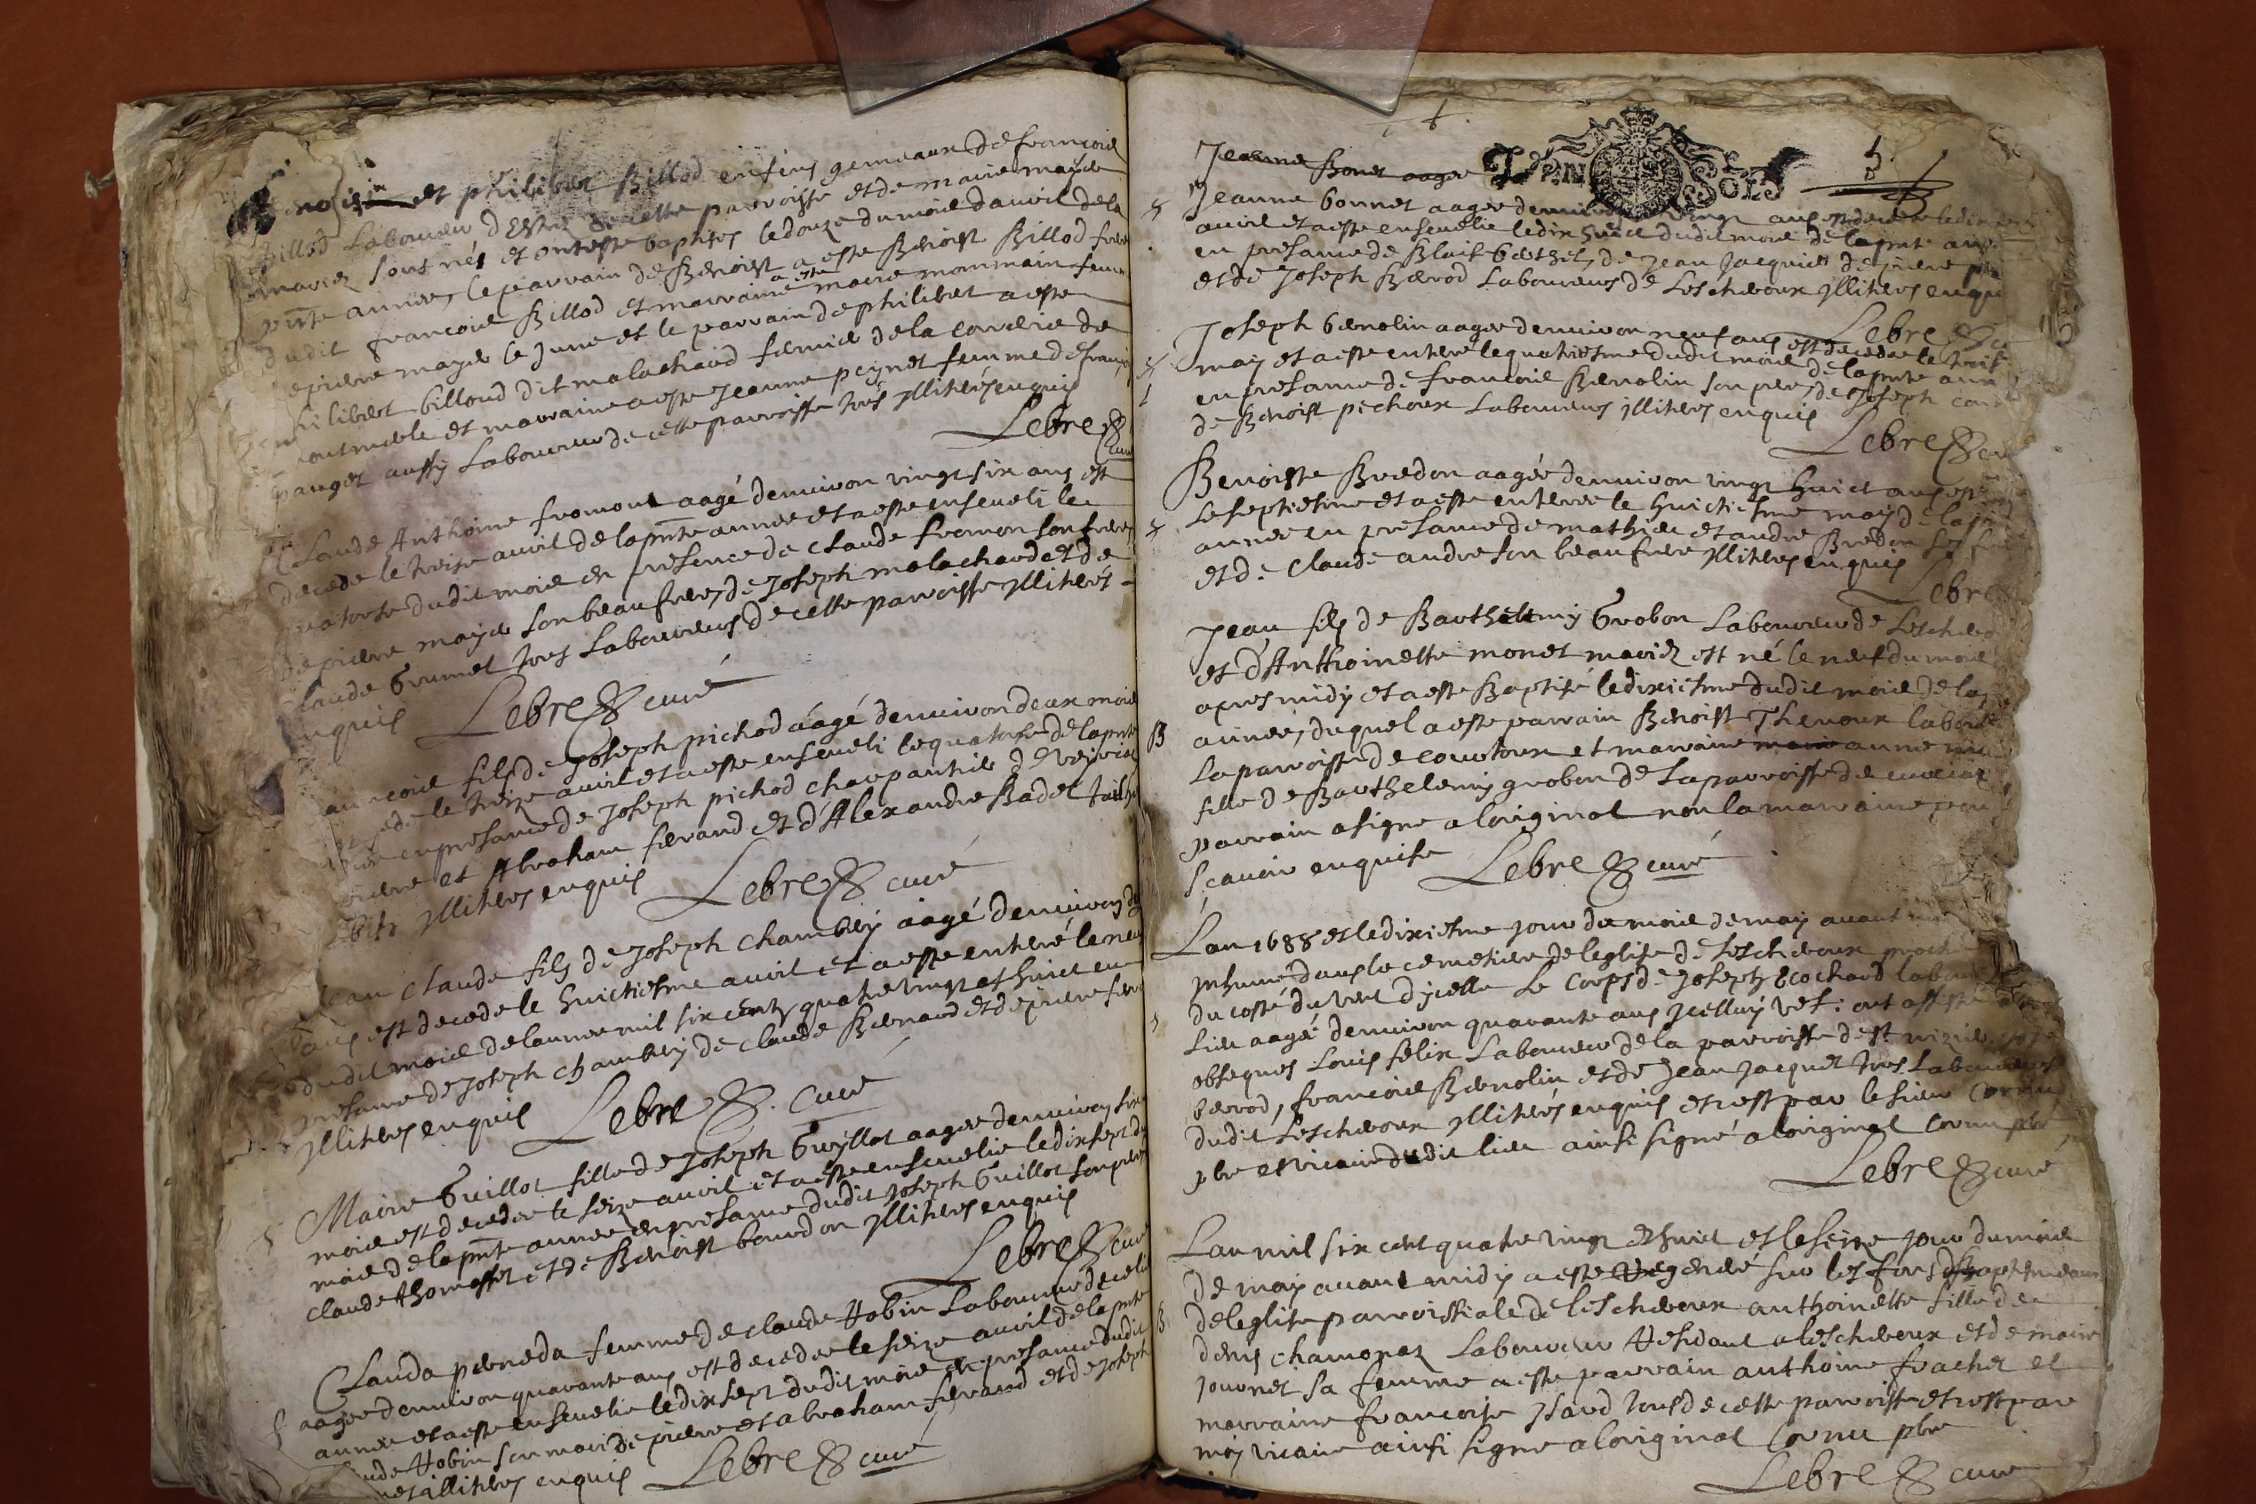 et philibert Billod enfens gemeaux de francois
Billod Laboureur de cette parroisse et de marie mayer
mariez sont nés et ont esté baptisés le douze du mois d'avril de la
pnte année, le parrain de Benoist a esté Benoist Billod frere
dudit francois Billod et marraine a esté marie monmain femme
de pierre mayer le June et le parrain de philibert a esté
philibert billoud dit malachard fermier de la
et marraine a esté Jeanne peynet femme de francois
pauget aussy Laboureur de cette parroisse tous Illitérés enquis
Lebre curé
Claude Anthoine fromont aagé denviron vingt six ans est
decede le treize avril de la pnte année et a esté enseveli le
quatorze dudit mois en presence de Claude fromon son frere
de pierre mayer son beau frere, de Joseph malachard et de
Claude Grumet tous Laboureurs de cette parroisse Illitérés
enquis Lebre curé
francois fils de Joseph pichod aagé denviron deux mois
decede le treize avril et a esté enseveli le quatorze de la pnte
en presance de Joseph pichod charpantier de
pierre et Abraham ferand et d'Alexandre Badel
Illiteres enquis Lebre curé
Jean Claude fils de Joseph Chambery aagé denviron
ans est decede le huictiesme avril et a esté enterré le neuf
dudit mois de lannee mil six cents quatre vingt et huict en
presance de Joseph Chambery de Claude Bernard et de pierre
Illiteres enquis Lebre curé
Marie Guillot fille de Joseph Guyllot aagee denviron six
mois est decedee le seize avril et a esté ensevelie le dix sept du
mois de la pnte annee en presance dudit Joseph Guillot son pere
Claude thomasset et de Benoist bourdon Illiteres enquis
Lebre curé
Clauda perneda femme de Claude Hobin Laboureur de ce lieu
aagee denviron quarante ans est decedee le seize avril de la pnte
annee et a esté ensevelie le dix sept dudit mois en presance dudit
Claude Hobin son mari de pierre et abraham ferand et de Joseph
illiteres enquis Lebre curé
Jeanne Bonet aagee
UN SOLS
Jeanne bonnet aagee denviron vingt ans est decedee le dix sept
avril et a esté ensevelie le dix huict dudit mois de la pnte année
en presance de Blaise berthet, de Jean Jacquier de pierre
et de Joseph Berod Laboureurs de Lescheroux Illiteres enquis
Lebre
Joseph bernolin aagee denviron neuf ans est decede le trois
may et a esté enterré le quatriesme dudit mois de la pnte annee
en presance de francois Bernolin son pere, de Joseph
de Benoist pichoux Laboureurs Illiteres enquis
Lebre curé
Benoiste Bredon aagée denviron vingt huict ans est
le septiesme et a esté enterree le huictiesme may de la pnte
annee en presance de mathieu et andre Bredon ses freres
et de Claude andre son beau frere Illiteres enquis
Lebre
Jean fils de Barthelemy Grobon Laboureur de Lescheroux
et d'Anthoinette monet mariez est né le neuf du mois
apres midy et a esté Baptisé le dixiesme dudit mois de la
année, duquel a esté parrain Benoist Thenoux laboureur
La parroisse de courtoux et marraine marie anne
fille de Barthelemy grobon de la parroisse de
parrain a signe a loriginal non la marraine pour
scavoir enquise Lebre curé
Lan 1688 et le dixiesme jour du mois de may avant midy
Inhumé dans le cemetiere de leglise de Lescheroux
du costé du vent d'icelle Le Corps de Joseph Ecochard laboureur
lieu aagé denviron quarante ans Icelluy vef: ont assisté
obseques Louis felix Laboureur de la parroisse de st nizier
berrod, francois Bernolin et de Jean Jacquet tous Laboureurs
dudit Lescheroux Illiterés enquis et cest par le sieur Cornu
pbre et vicaire dudit lieu ainsi signé a loriginal Cornu pbre
Lebre curé
Lan mil six cent quatre vingt et huict et le seize jour du mois
de may avant midy a esté regeneré sur les fons Baptismaux
de leglise parroissiale de lescheroux anthoinette fille de
denis Chamonet Laboureur Residant a lescheroux et de marie
Jouvnet sa femme a esté parrain anthoine frachet et
marraine francoise Isard tous de cette parroisse et cest par
moy vicaire ainsi signe a loriginal Cornu pbre
Lebre curé